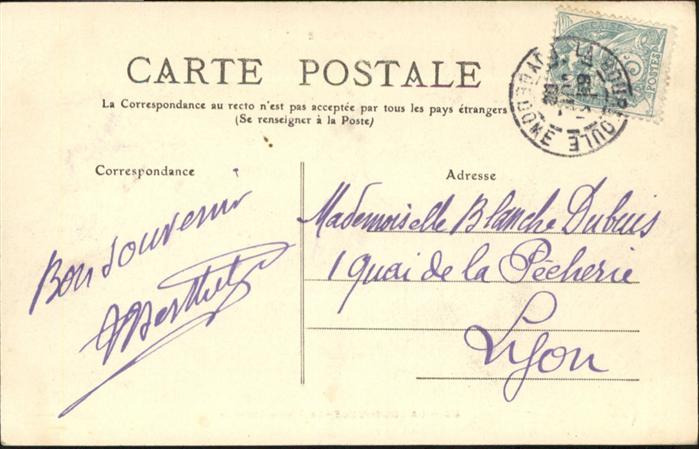 CARTE POSTALE
La Correspondance au recto n'est pas acceptée par tous les pays étrangers
(Se renseigner à la Poste)
LA BOURBOULE
PUY DE DOME
POSTES
Correspondance
Adresse
Bon Souvenir
Mademoiselle Blanche Dubuis
1 Quai de la Pêcherie
Lyon